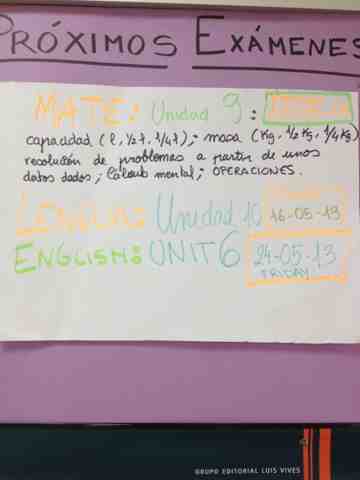 PRÓXIMOS EXÁMENES
MATE: Unidad 9:
capacidad (l, 1/2 l, 1/4 l); masa (Kg, 1/2 Kg, 1/4 Kg)
resolución de problemas a partir de unos
datos dados; Cálculo mental; OPERACIONES.
LENGUA: Unidad 10 16-05-13
ENGLISH: UNIT 6 24-05-13
FRIDAY
GRUPO EDITORIAL LUIS VIVES